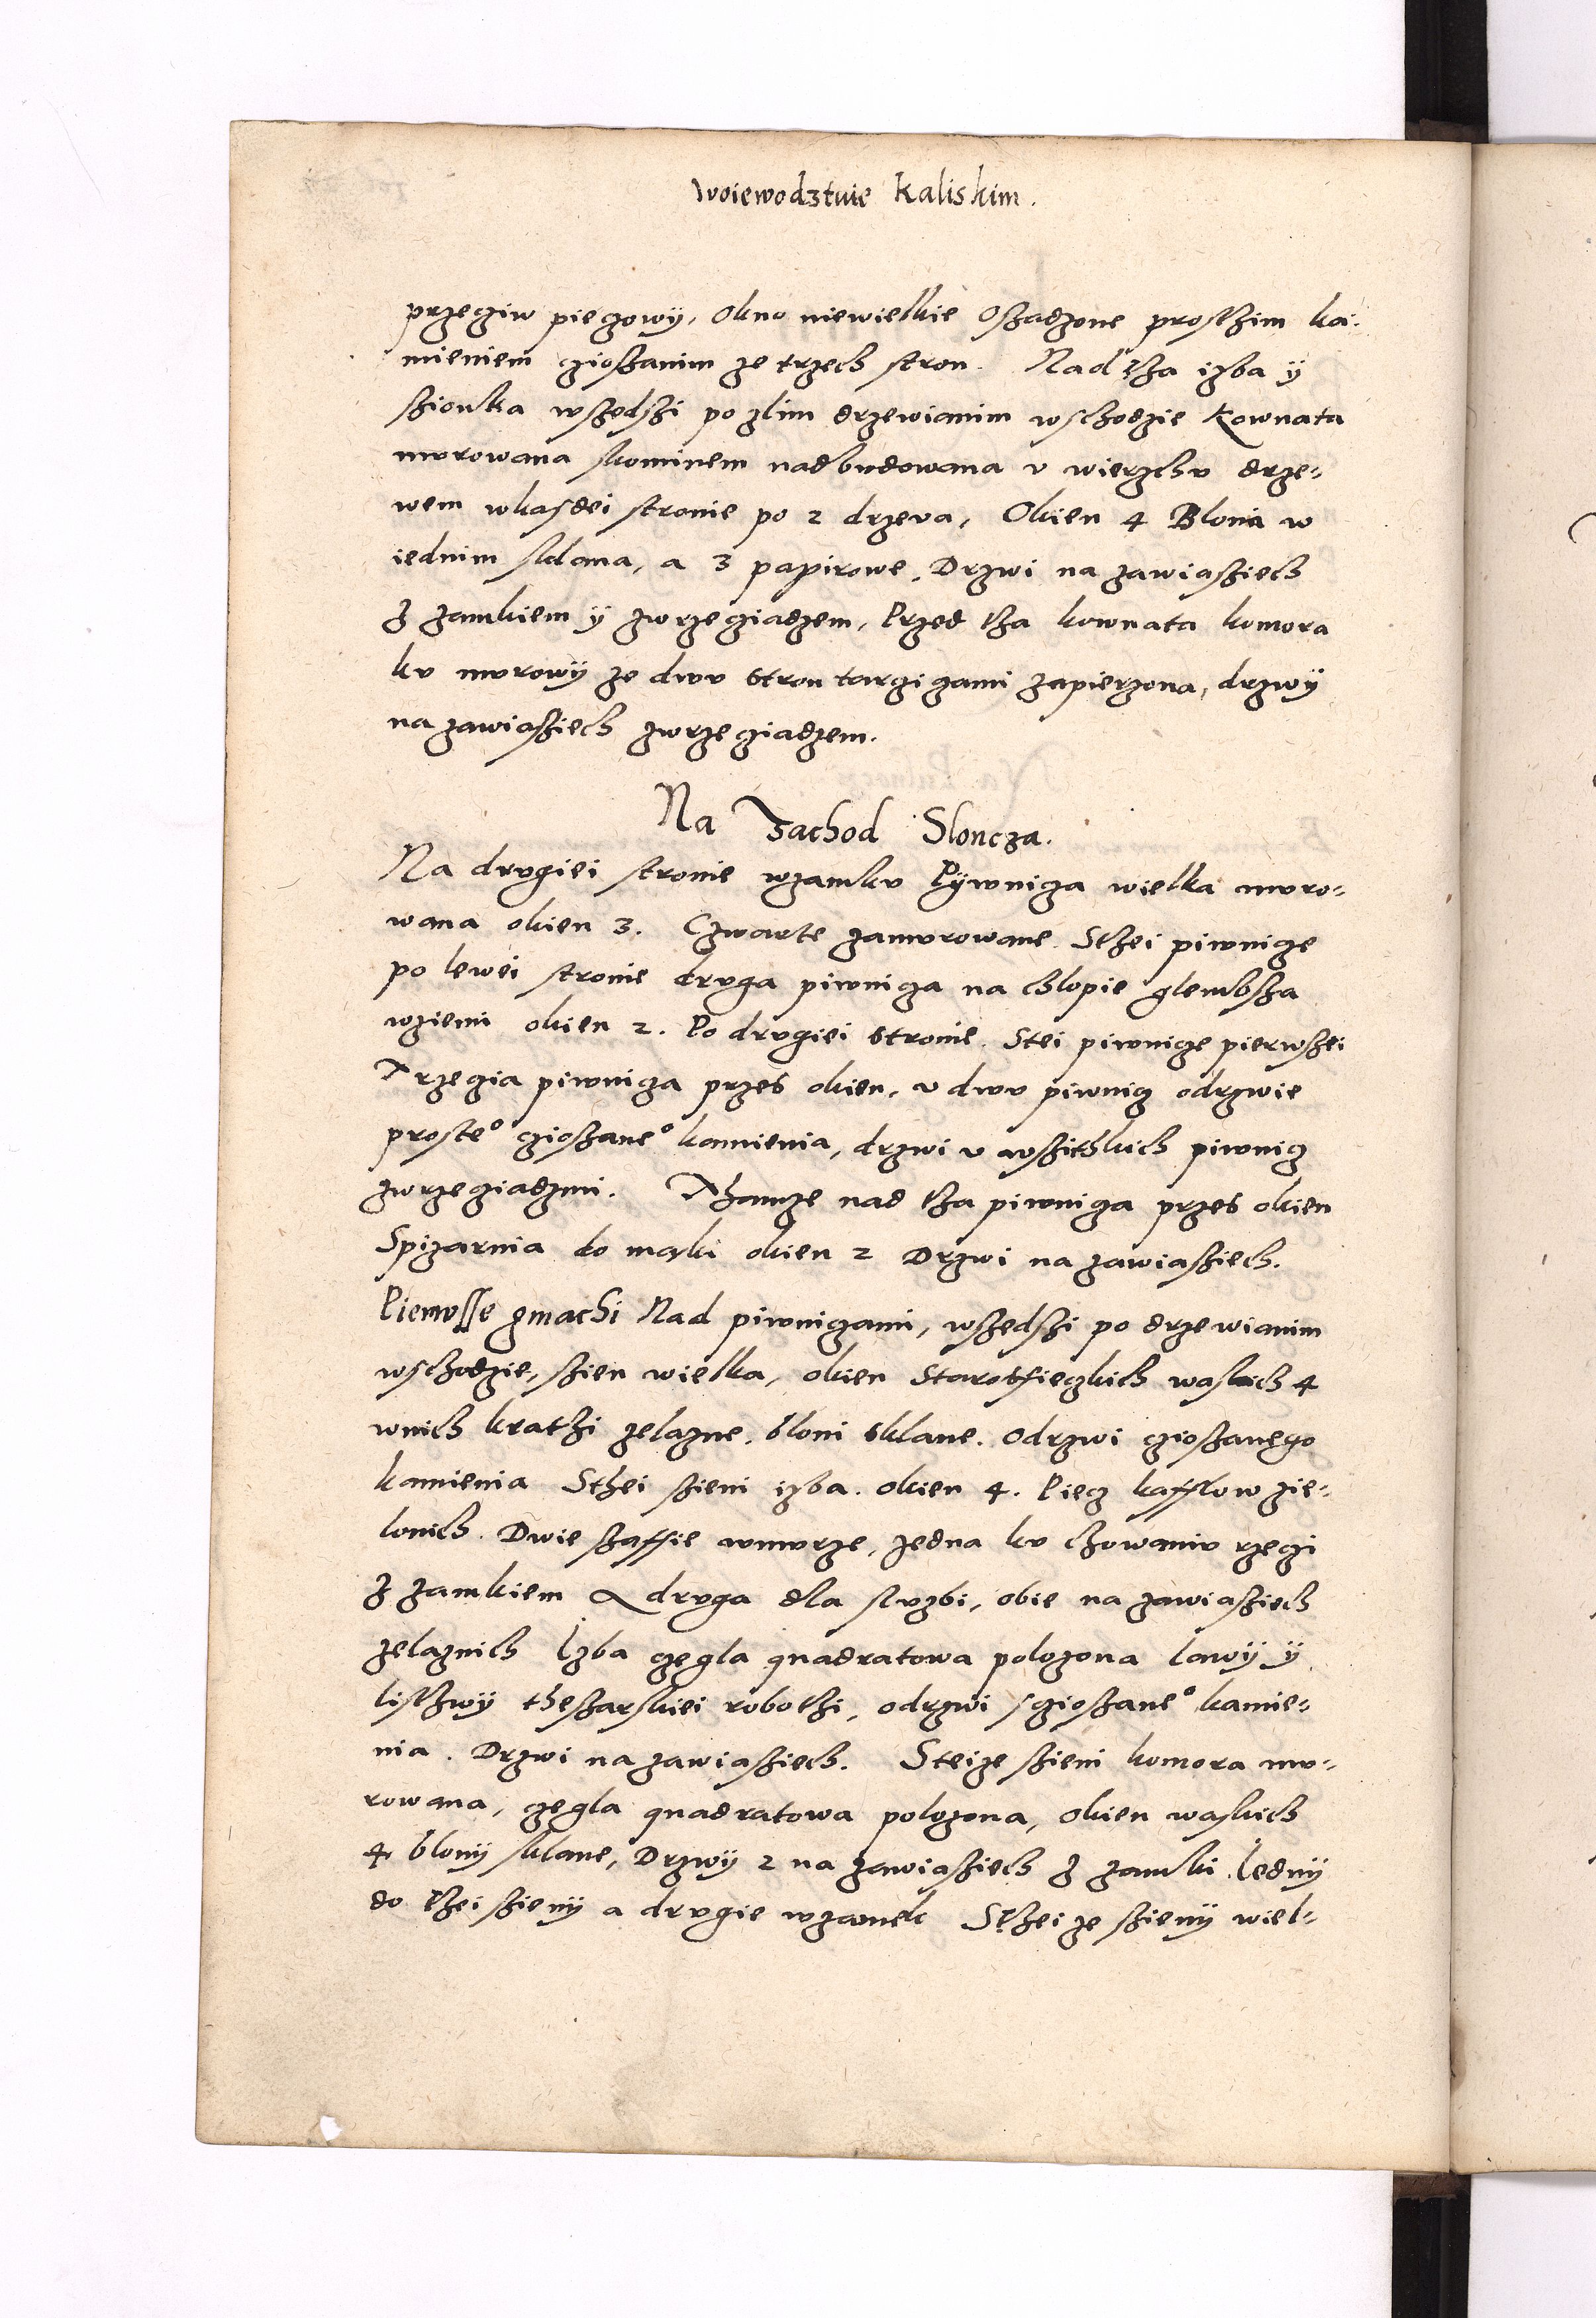 Woiewodztwie Kaliskim.
przeciw piecowÿ, Okno niewielkie Oszadzone prosthim ka-
mieniem czioszanim ze trzech stron. Nad tha izba ÿ
szionka wszedszi po zlim drzewianim wschodzie Kownata
mvrowana kominem nadbudowana v wierzchv drze-
wem wkasdei stronie po 2 drzeva, Okien 4 Blona w
iednim sklana, a 3 papirowe, Drzwi na zawiasziech
Z zamkiem ÿ zwrzecziadzem, Przed tha kownata komora
kv mvrowÿ ze dwv stron tarczizami zapierzona, drzwÿ
na zawiasziech zwrzecziadzem.
Na Zachod Sloncza.
Na drvgiei stronie wzamkv Pÿwnicza wielka mvro-
wana okien 3. Czwarte zamvrowane. Sthei piwnicze
po lewei stronie drvga piwnicza na chlopie glembsza
wziemi okien 2. Po drvgiei stronie. Stei piwnicze pierwszei
Trzecia piwnicza przes okien, v dwv piwnicz odrzwie
proste° czioszane° kamienia, drzwi v wszithkich piwnicz
zwrzecziadzmi. Thamze nad tha piwnicza przes okien
Spizarnia do maki okien 2 Drzwi na zawiasziech.
Pierwsse gmachi Nad piwniczami, wszedszi po drzewianim
wschodzie, szien wielka, okien Staroswieczkich waskich 4
wnich krathi zelazne, bloni sklane. Odrzwi czioszanego
kamienia Sthei szieni izba. okien 4. Piecz kafflow zie-
lonich. Dwie szaffie wmvrze, Jedna kv chowaniv rzeczi
Z zamkiem A drvga dla slvzbi, obie na zawiasziech
zelaznich Izba czegla quadratowa polozona lawÿ ÿ
listhwÿ theszarskiei robothi, odrzwi sczioszane° kamie-
nia. Drzwi na zawiasziech. Steize szieni komora mv-
rowana, czegla quadratowa polozona, Okien waskich
4 blonÿ sklane, Drzwÿ 2 na zawiasziech Z zamki. Iednÿ
do thei szienÿ a drvgie wzamek Stheize szienÿ wiel-